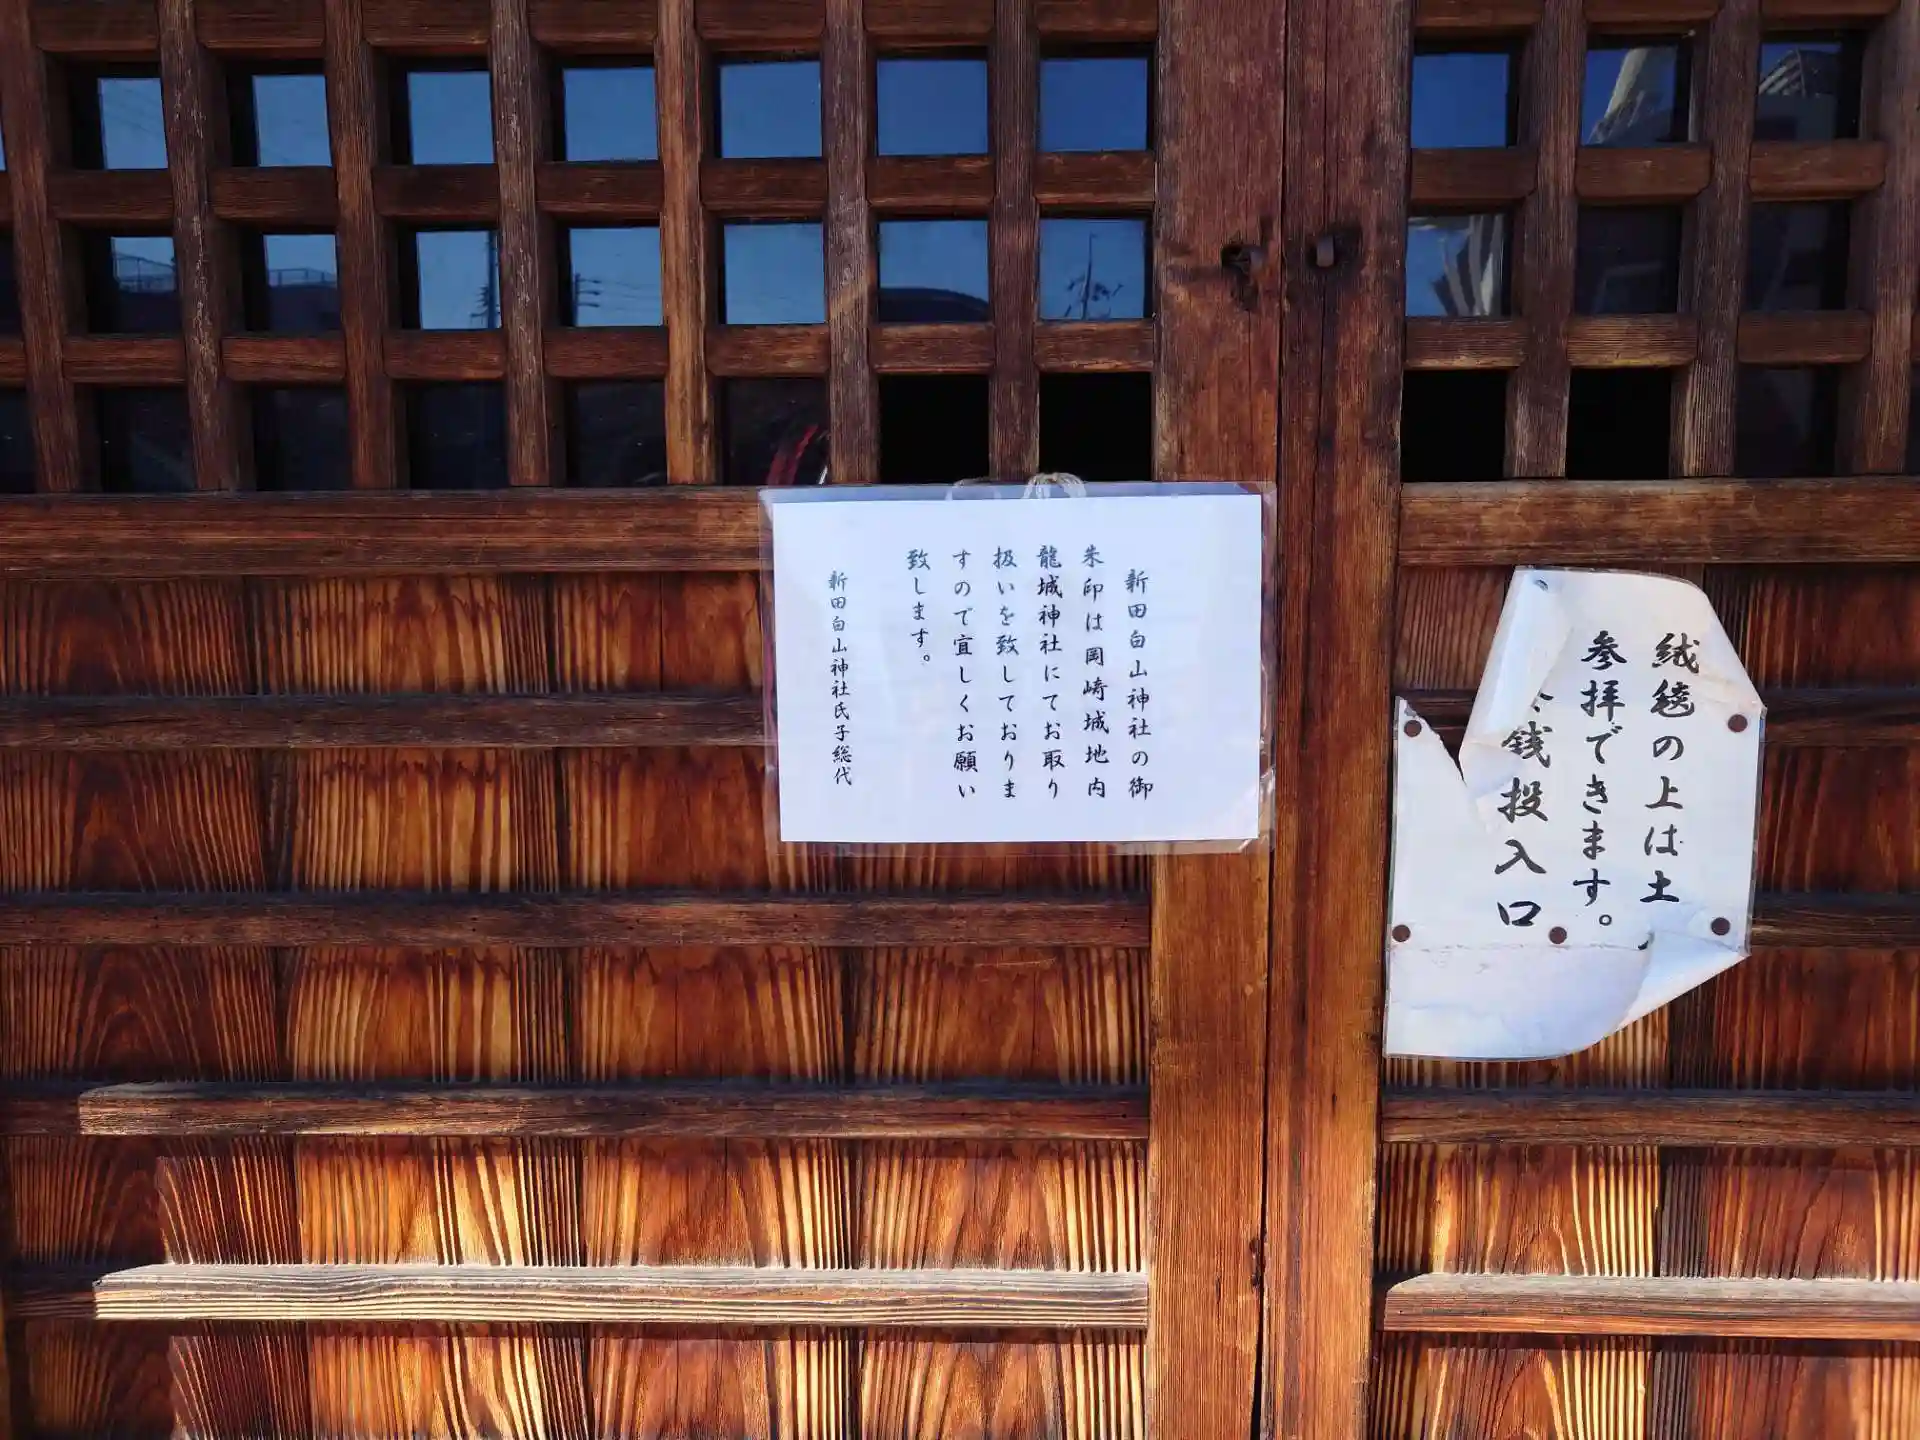 新田白山神社の御
朱印は岡崎城地内
龍城神社にてお取り
扱いを致しておりま
すので宜しくお願い
致します。
新田白山神社氏子総代
絨毯の上は土
参拝できます。
銭投入口